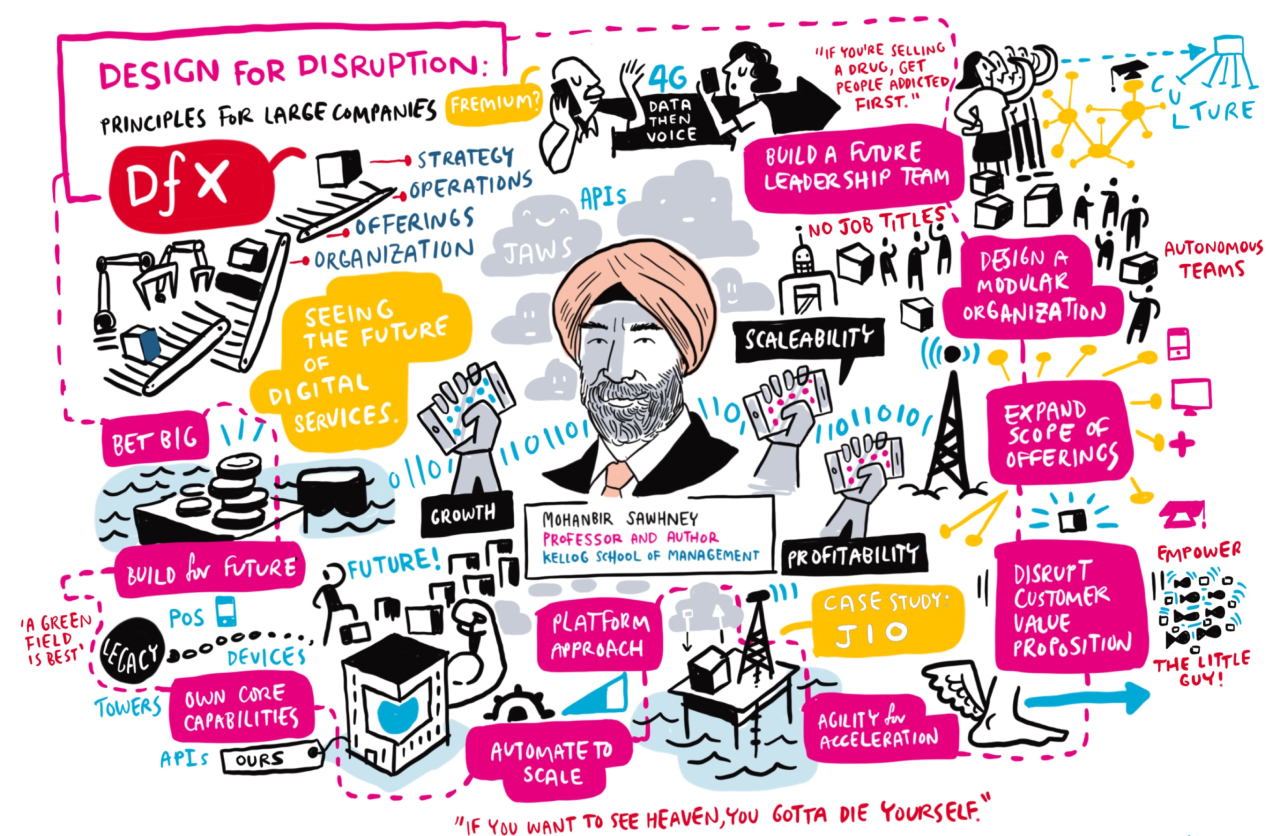 DESIGN FOR DISRUPTION:
PRINCIPLES FOR LARGE COMPANIES
FREMIUM?
4G
DATA
THEN
VOICE
"IF YOU'RE SELLING
A DRUG, GET
PEOPLE ADDICTED
FIRST."
CULTURE
DfX
STRATEGY
OPERATIONS
OFFERINGS
ORGANIZATION
APIs
JAWS
BUILD A FUTURE
LEADERSHIP TEAM
NO JOB TITLES
DESIGN A
MODULAR
ORGANIZATION
AUTONOMOUS
TEAMS
SEEING
THE FUTURE
OF
DIGITAL
SERVICES.
SCALEABILITY
EXPAND
SCOPE OF
OFFERINGS
BET BIG
0110
110110
110
110110101
GROWTH
MOHANBIR SAWHNEY
PROFESSOR AND AUTHOR
KELLOG SCHOOL OF MANAGEMENT
PROFITABILITY
BUILD for FUTURE
FUTURE!
DISRUPT
CUSTOMER
VALUE
PROPOSITION
EMPOWER
THE LITTLE
GUY!
'A GREEN
FIELD
IS BEST'
LEGACY
POS
DEVICES
TOWERS
OWN CORE
CAPABILITIES
APIs
OURS
PLATFORM
APPROACH
CASE STUDY:
JIO
AUTOMATE TO
SCALE
AGILITY for
ACCELERATION
"IF YOU WANT TO SEE HEAVEN, YOU GOTTA DIE YOURSELF."